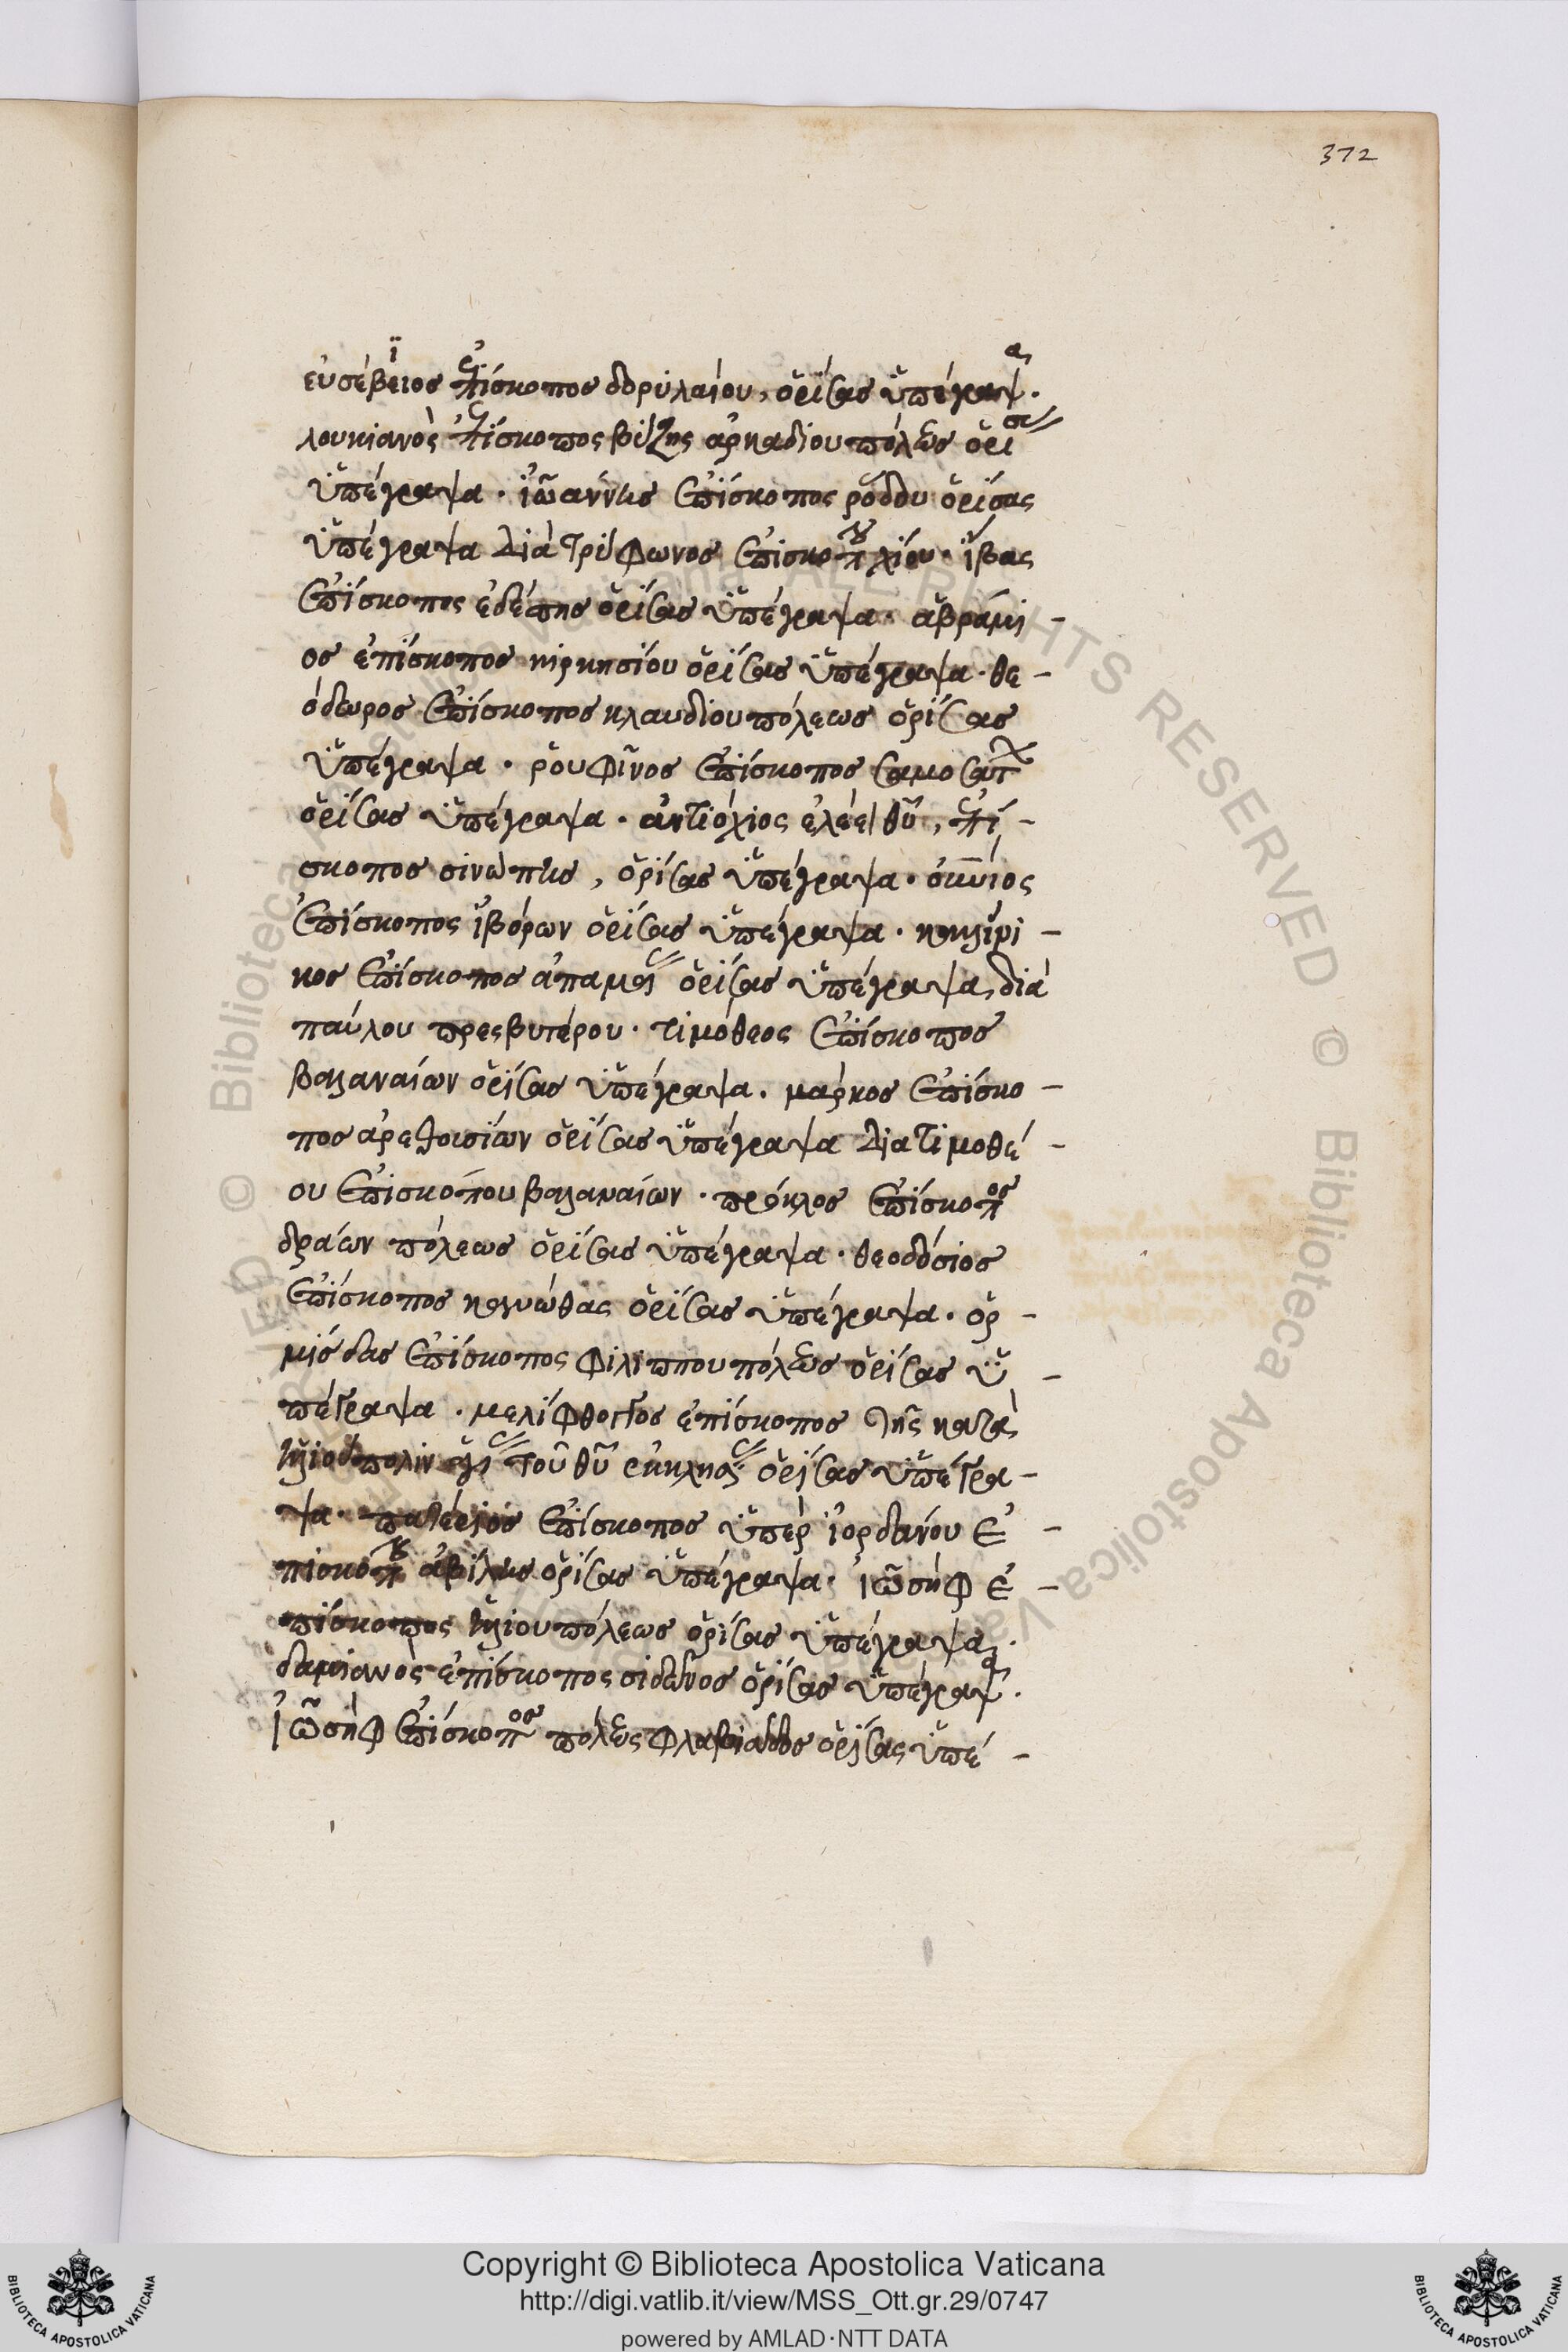 372
εὐσέβειος ἐπίσκοπος δορυλαίου, ὁρίσας ὑπέγραψα.
λουκιανὸς ἐπίσκοπος βίζης ἀρκαδίου πόλεως ὁρίσ
ὑπέγραψα. ἰωάννης ἐπίσκοπος ρόδου ὁρίσας
ὑπέγραψα διὰ τρύφωνος ἐπισκόπου χίου. ἴβας
ἐπίσκοπος ἐδέσης ὁρίσας ὑπέγραψα. ἀβράμι-
ος ἐπίσκοπος κιρκησίου ὁρίσας ὑπέγραψα. θε-
όδωρος ἐπίσκοπος κλαυδίου πόλεως ὁρίσας
ὑπέγραψα. ρουφῖνος ἐπίσκοπος σαμοσάτ
ὁρίσας ὑπέγραψα. ἀντιόχιος ἐλέει θυ, ἐπί-
σκοπος σινώπης, ὁρίσας ὑπέγραψα.
ἐπίσκοπος ἰβόρων ὁρίσας ὑπέγραψα.
κος ἐπίσκοπος ἀπαμεί ὁρίσας ὑπέγραψα, διὰ
παύλου πρεσβυτέρου. τιμόθεος ἐπίσκοπος
βαλαναίων ὁρίσας ὑπέγραψα. μάρκος ἐπίσκο-
πος ἀρεθουσίων ὁρίσας ὑπέγραψα διὰ τιμοθέ-
ου ἐπισκόπου βαλαναίων. πρόκλος ἐπίσκοπος
δραίων πόλεως ὁρίσας ὑπέγραψα. θεοδόσιος
ἐπίσκοπος κανώθας ὁρίσας ὑπέγραψα. ὁρ-
μίσδας ἐπίσκοπος φιλίππου πόλεως ὁρίσας ὑ-
πέγραψα. μελίφθογγος ἐπίσκοπος τῆς κατὰ
τοῦ θυ ἐκκλησ ὁρίσας ὑπέγρα-
ψα. ἐπίσκοπος ὑπὲρ ἰορδάνου ἐ-
πισκόπου ἀβίλης ὁρίσας ὑπέγραψα. ἰωσὴφ ἐ-
πίσκοπος ἡλίου πόλεως ὁρίσας ὑπέγραψα.
δαμιανὸς ἐπίσκοπος σιδῶνος ὁρίσας ὑπέγραψα.
ἰωσὴφ ἐπίσκοπος πόλεως φλαβιάδος ὁρίσας ὑπέ-
Copyright © Biblioteca Apostolica Vaticana
http://digi.vatlib.it/view/MSS_Ott.gr.29/0747
powered by AMLAD·NTT DATA